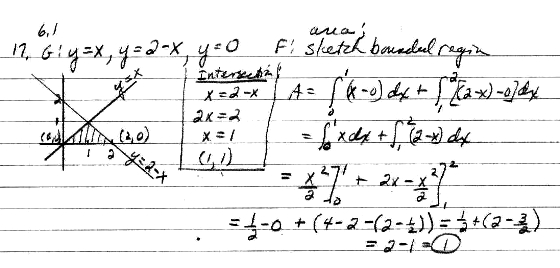 6.1
17. G: y=x, y=2-x, y=0 F: sketch bounded region area;
y=x
2
(0,0) (2,0)
1 2
y=2-x
Intersection
x=2-x
2x=2
x=1
(1,1)
A = ∫₀¹ (x-0) dx + ∫₁² [(2-x)-0] dx
= ∫₀¹ x dx + ∫₁² (2-x) dx
= x²/2 ]₀¹ + 2x - x²/2 ]₁²
= 1/2 - 0 + (4-2-(2-1/2)) = 1/2 + (2-3/2)
= 2-1 = 1